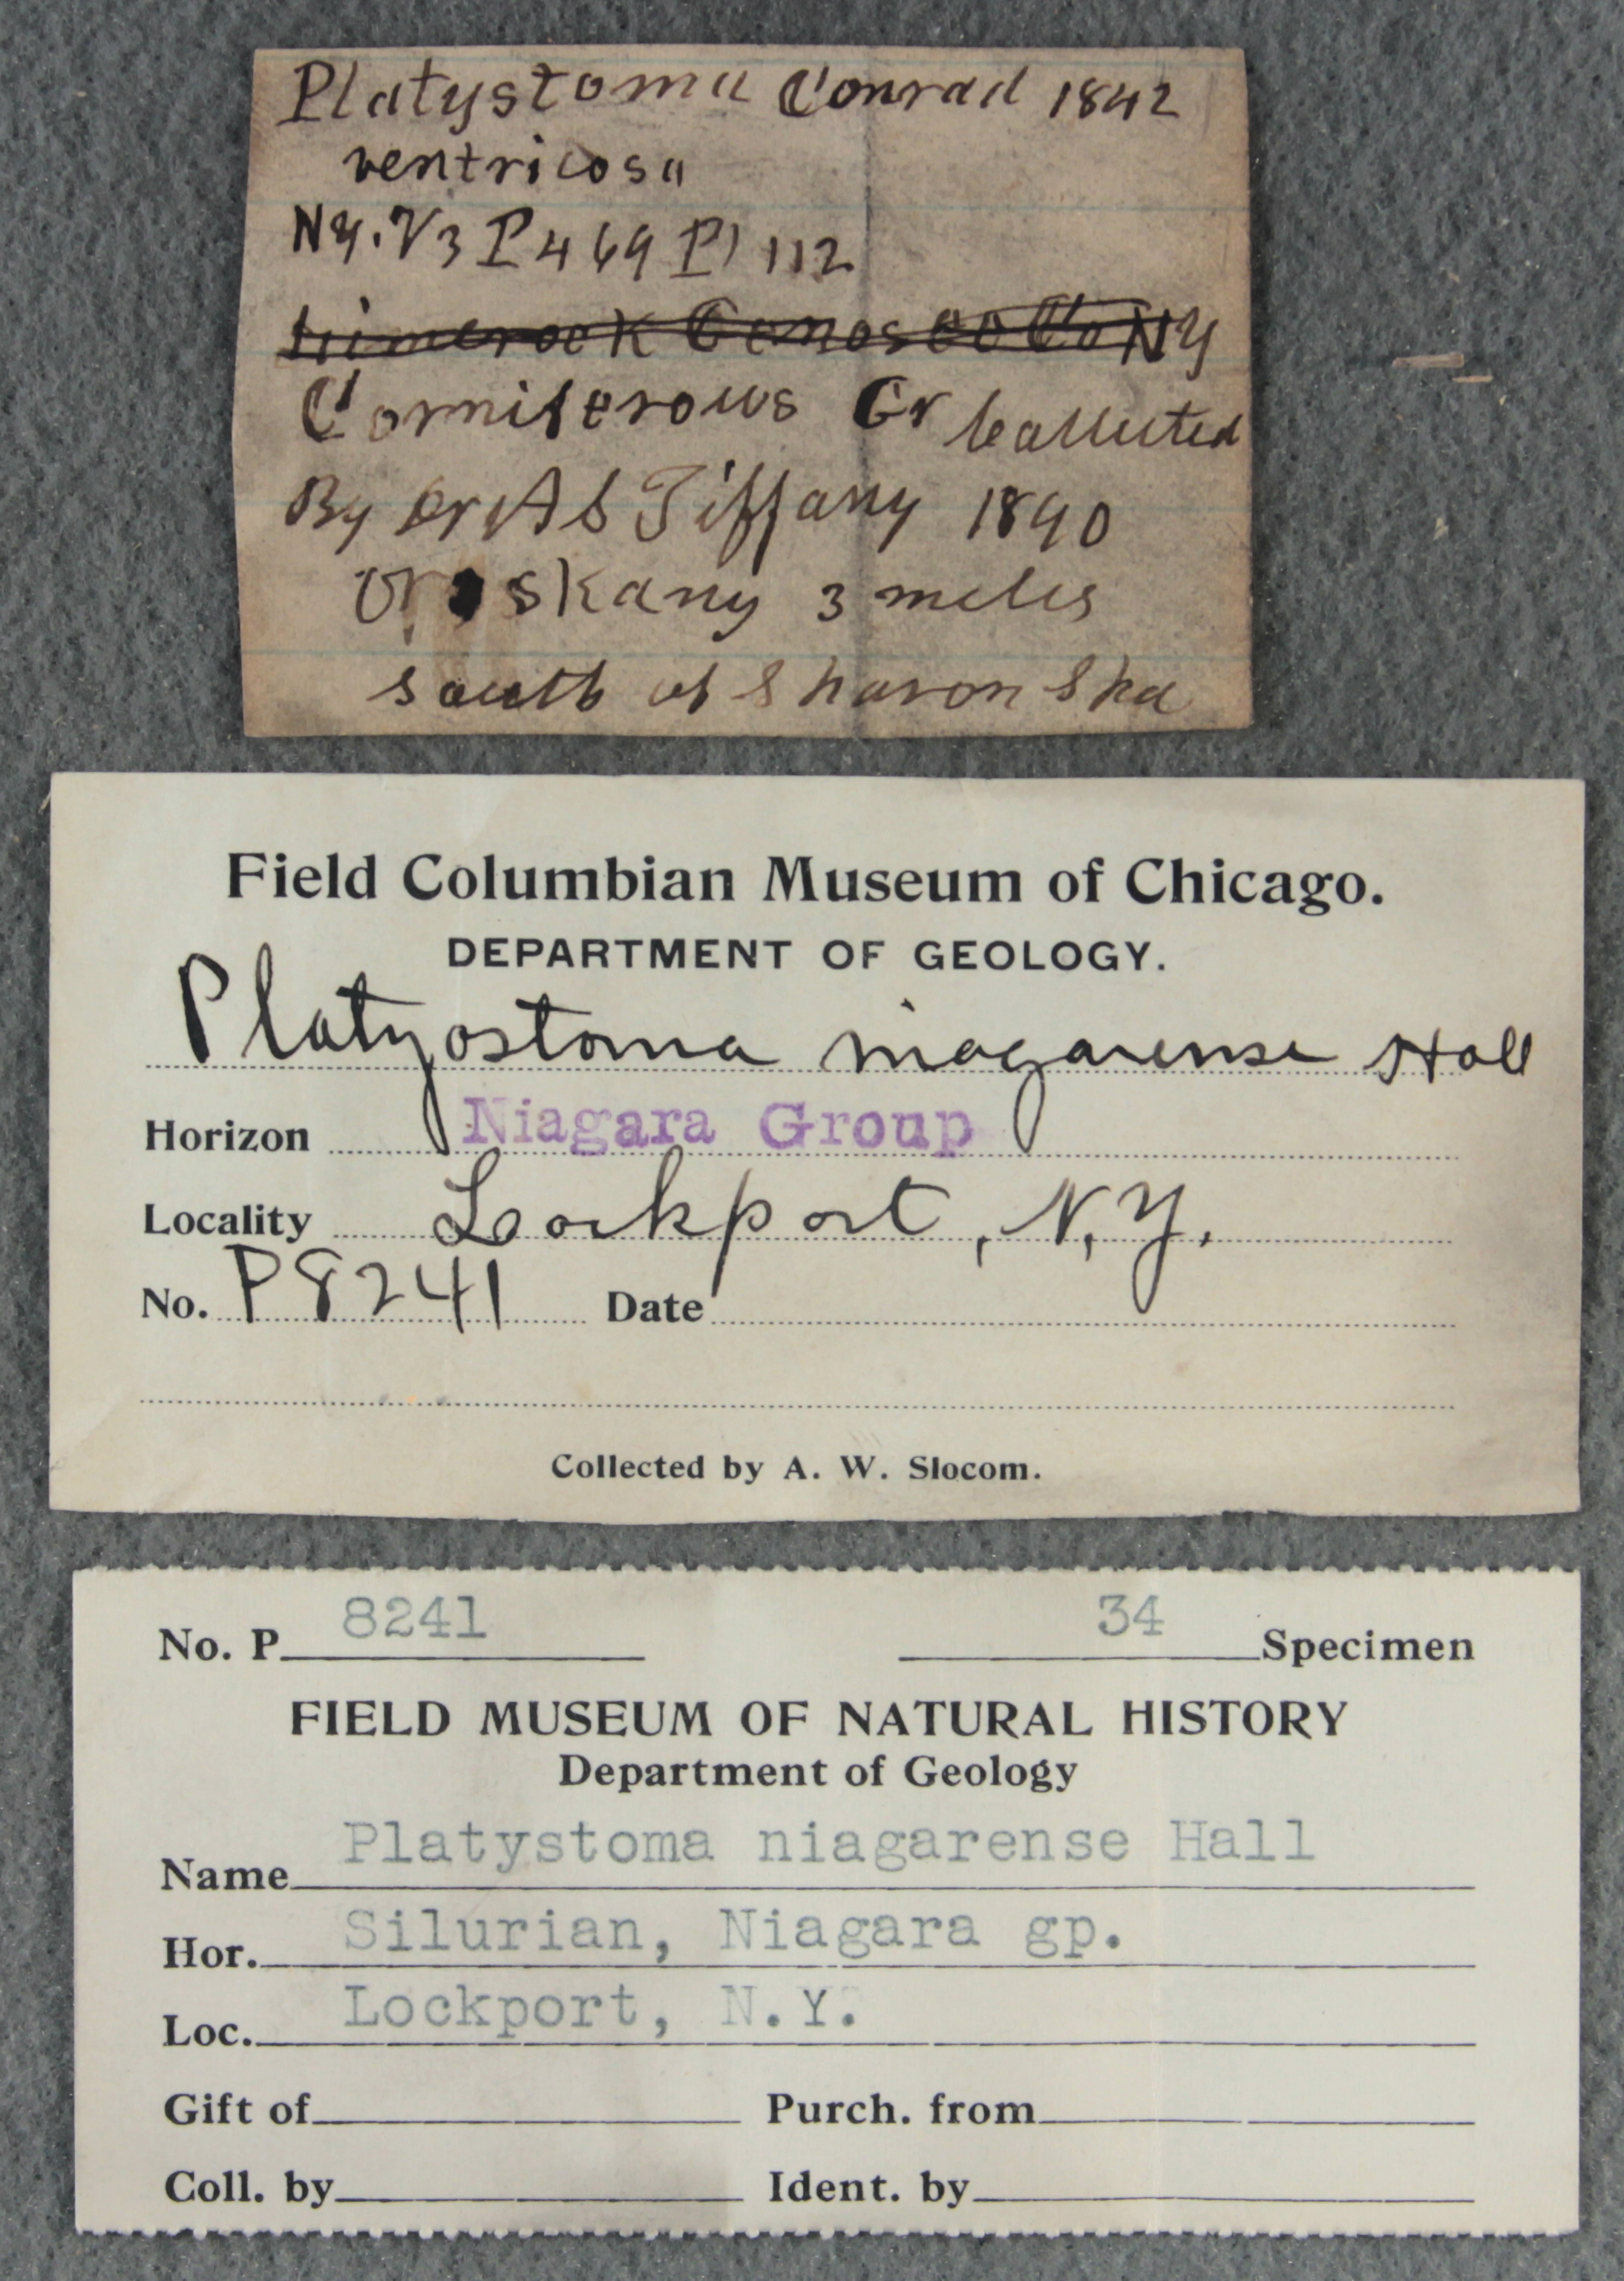 Platystoma Conrad 1842
ventricosa
NY. V3 P469 Pl 112
Limerock Genoseo Co NY
Corniferous Gr Collected
By Dr A S Tiffany 1890
Oroskany 3 miles
south of Sharon Ska
Field Columbian Museum of Chicago.
DEPARTMENT OF GEOLOGY.
Platyostoma niagarense Hall
Horizon Niagara Group
Locality Lockport, N.Y.
No. P8241 Date
Collected by A. W. Slocom.
No. P 8241 34 Specimen
FIELD MUSEUM OF NATURAL HISTORY
Department of Geology
Name Platystoma niagarense Hall
Hor. Silurian, Niagara gp.
Loc. Lockport, N.Y.
Gift of Purch. from
Coll. by Ident. by